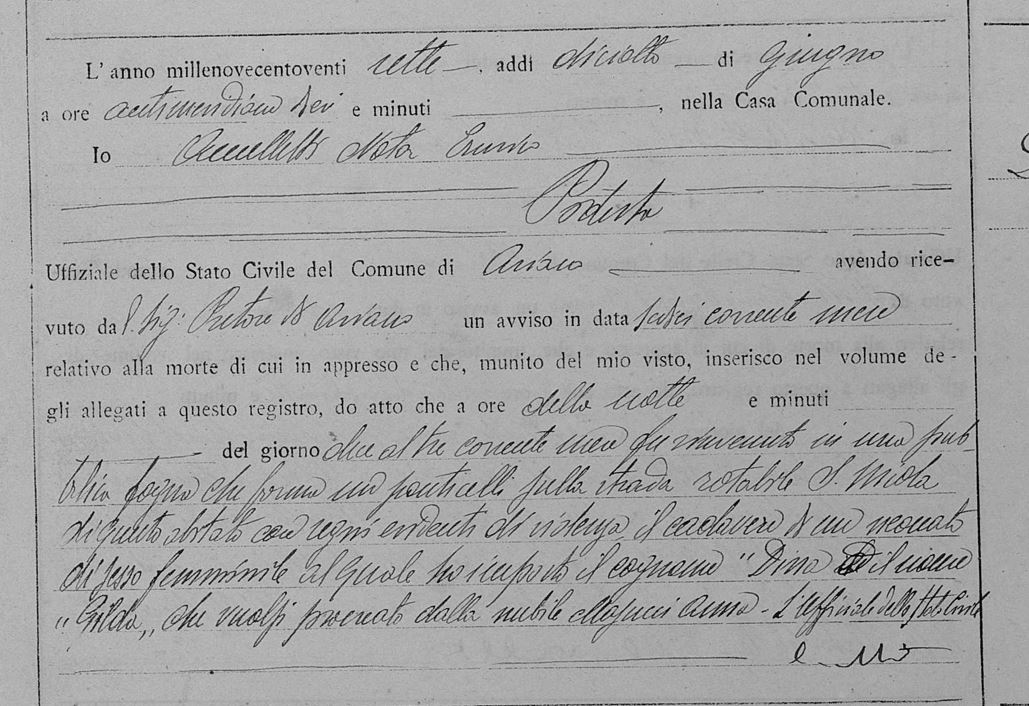 L' anno millenovecentoventi sette, addì diciotto di Giugno
a ore antimeridiane sei e minuti , nella Casa Comunale.
Io Notar
Podestà
Uffiziale dello Stato Civile del Comune di Ariano avendo rice-
vuto dal Sig: Pretore di Ariano un avviso in data sedici corrente mese
relativo alla morte di cui in appresso e che, munito del mio visto, inserisco nel volume de-
gli allegati a questo registro, do atto che a ore della notte e minuti
del giorno due al tre corrente mese fu rinvenuto in una pub-
blica fogna che forma un ponticello sulla strada rotabile S. Nicola
di questo abitato con segni evidenti di violenza, il cadavere di un neonato
di sesso femminile al quale ho imposto il cognome "Dima il nome
"Gilda,, che vuolsi procreato dalla nubile Anna - L'Uffiziale dello Stato Civile